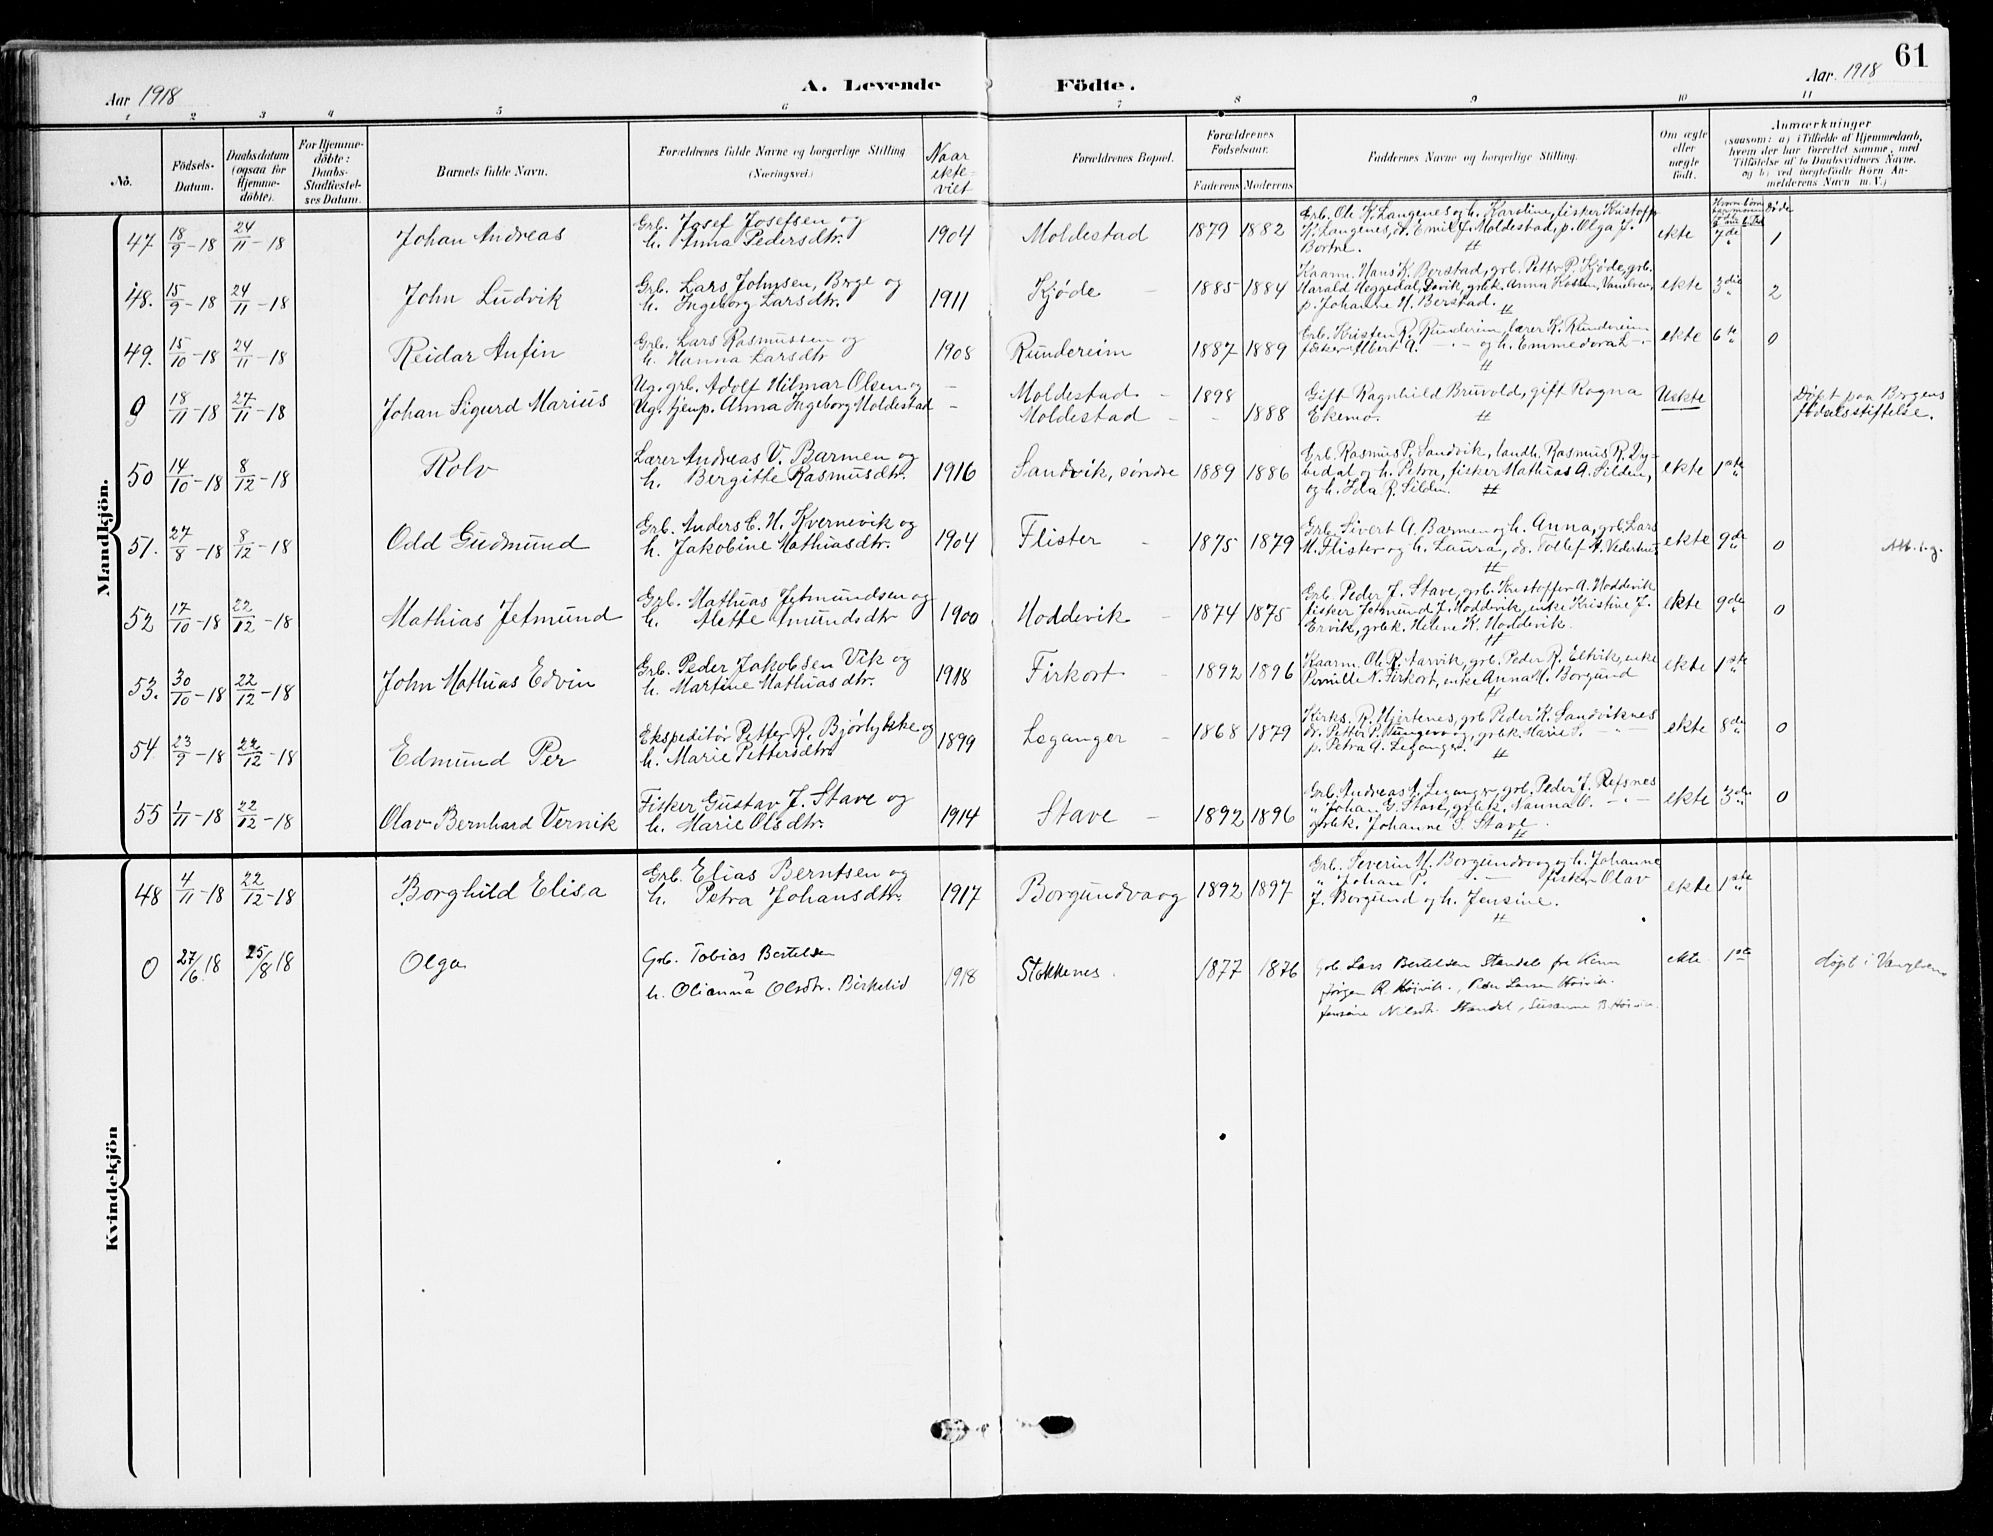 61
Aar 1918
A. Levende Födte.
Aar 1918
1 2 3 4 5 6 7 8 9 10 11
No.
Födsels-Datum.
Daabsdatum (ogsaa for Hjemme-döbte).
For Hjemme-döbte: Daabs-Stadfæstel-ses Datum.
Barnets fulde Navn.
Forældrenes fulde Navne og borgerlige Stilling (Næringsvei.)
Naar ekte-viet
Forældrenes Bopæl.
Forældrenes Födselsaar.
Faderens Moderens
Faddernes Navne og borgerlige Stilling.
Om ægte eller uægte født.
Anmærkninger
(saasom: a) i Tilfælde af Hjemmedaab, hvem der har forrettet samme, med Tilføielse af to Daabsvidners Navne, og b) ved uægtefødte Börn An-melderens Navn m. V.)
Døde
Mandkjön.
47 18/9-18 24/11-18 Johan Andreas Grb. Josef Josefsen og 1904 Moldestad 1879 1882 Grb. Ole K. Langenes og h. Karoline, fisker Kristoffer ekte 7de 1
h. Anna Pedersdtr. K. Langenes, d. Emil J. Moldestad, p. Olga J.
Bortne.
48. 15/9-18 24/11-18 John Ludvik Grb. Lars Johnsen, Brge og 1911 Kjøde 1885 1884 Kaarm. Hans K. Berstad, grb. Petter P. Kjøde, grb. ekte 3die 2
h. Ingeborg Larsdtr. Harald Hoggedal, Davik, grbk. Anna Vanelven,
p. Johanne H. Berstad.
49. 15/10-18 24/11-18 Reidar Anfin Grb. Lars Rasmussen og 1908 Rundereim 1887 1889 Grb. Kristen R. Rundereim, lærer K. Rundereim ekte 6te 0
h. Hanna Larsdtr fisker Albert A. -"- og h. Emmedora L -"-
9 18/11-18 27/11-18 Johan Sigurd Marius Ug. grb. Adolf Hilmar Olsen og - Moldestad 1898 Gift Ragnhild Bruvold, gift Ragna Uekte Døpt paa Brgens
Ug. tjenp. Anna Ingeborg Moldestad - Moldestad - 1888 Ekemo. fødselsstiftelse.
50 14/10-18 8/12-18 Rolv Lærer Andreas V. Barmen og 1916 Sandvik, søndre 1889 1886 Grb. Rasmus P. Sandvik, landh. Rasmus R. Dy- ekte 1ste
h. Bergitte Rasmusdtr. bedal og h. Petra, fisker Mathias A. Silden,
og h. Ida R. Silden.
51. 27/8-18 8/12-18 Odd Gudmund Grb. Anders E. H. Kvernevik og 1904 Flister 1875 1879 Grb. Sivert A. Barmen og h. Anna, grb. Lars ekte 9de 0
h. Jakobine Mathiasdtr. M. Flister og h. Laura, d. Tollef A. Vederhus
52 17/10-18 22/12-18 Mathias Jetmund Grb. Mathias Jetmundsen og 1900 Hoddevik 1874 1875 Grb. Peder J. Stave, grb. Kristoffer A. Hoddevik ekte 9de 0
h. Mette Amundsdtr fisker Jetmund J. Hoddevik, enke Kristine J.
Ervik, grbk. Helene K. Hoddevik.
53. 30/10-18 22/12-18 John Mathias Edvin Grb. Peder Jakobsen Vik og 1918 Firkort 1892 1896 Kaarm. Ole R. Aarvik, grb. Peder R. Eltvik, enke ekte 1ste
h. Martine Mathiasdtr. Pernille N. Firkort, enke Anna M. Borgund
54 23/9-18 22/12-18 Edmund Per Ekspeditør Petter R. Bjørlykke og 1899 Leganger 1868 1879 Kirks. R. Hjertenes, grb Peder K. Sandviknes ekte 8de 0
h. Marie Pettersdtr d. Petter P. grbk. Marie
p. Petra A. Leganger.
55 1/11-18 22/12-18 Olav Bernhard Vernik Fisker Gustav J. Stave og 1914 Stave 1892 1896 Grb. Andreas A. Leganger, grb. Peder J. Refsnes ekte 3die 0
h. Marie Olsdtr. " Johan G. Stave, grbk. Nanna O. -"-
grbk. Johanne S. Stave.
Kvindekjön
48 4/11-18 22/12-18 Borghild Elisa Grb. Elias Berntsen og 1917 Borgundvaag 1892 1897 Grb. Severin M. Borgundvaag og h. Johanne ekte 1ste
h. Petra Johansdtr. " Johan P. -"- fisker Olav
J. Borgund og h. Jensine.
0 27/6 18 25/8 18 Olga Grb. Tobias Bertelsen 1918 Stokkenes. 1877 1876 Grb Lars Bertelsen Standal fra Kinn ekte 1ste døpt i Vanylven
h. Olianna Olsdtr. Birkelid Jørgen R Høivik., Peder Larsen Høivik.
Jensine Nilsdtr. Standal, Susanne B. Høivik.